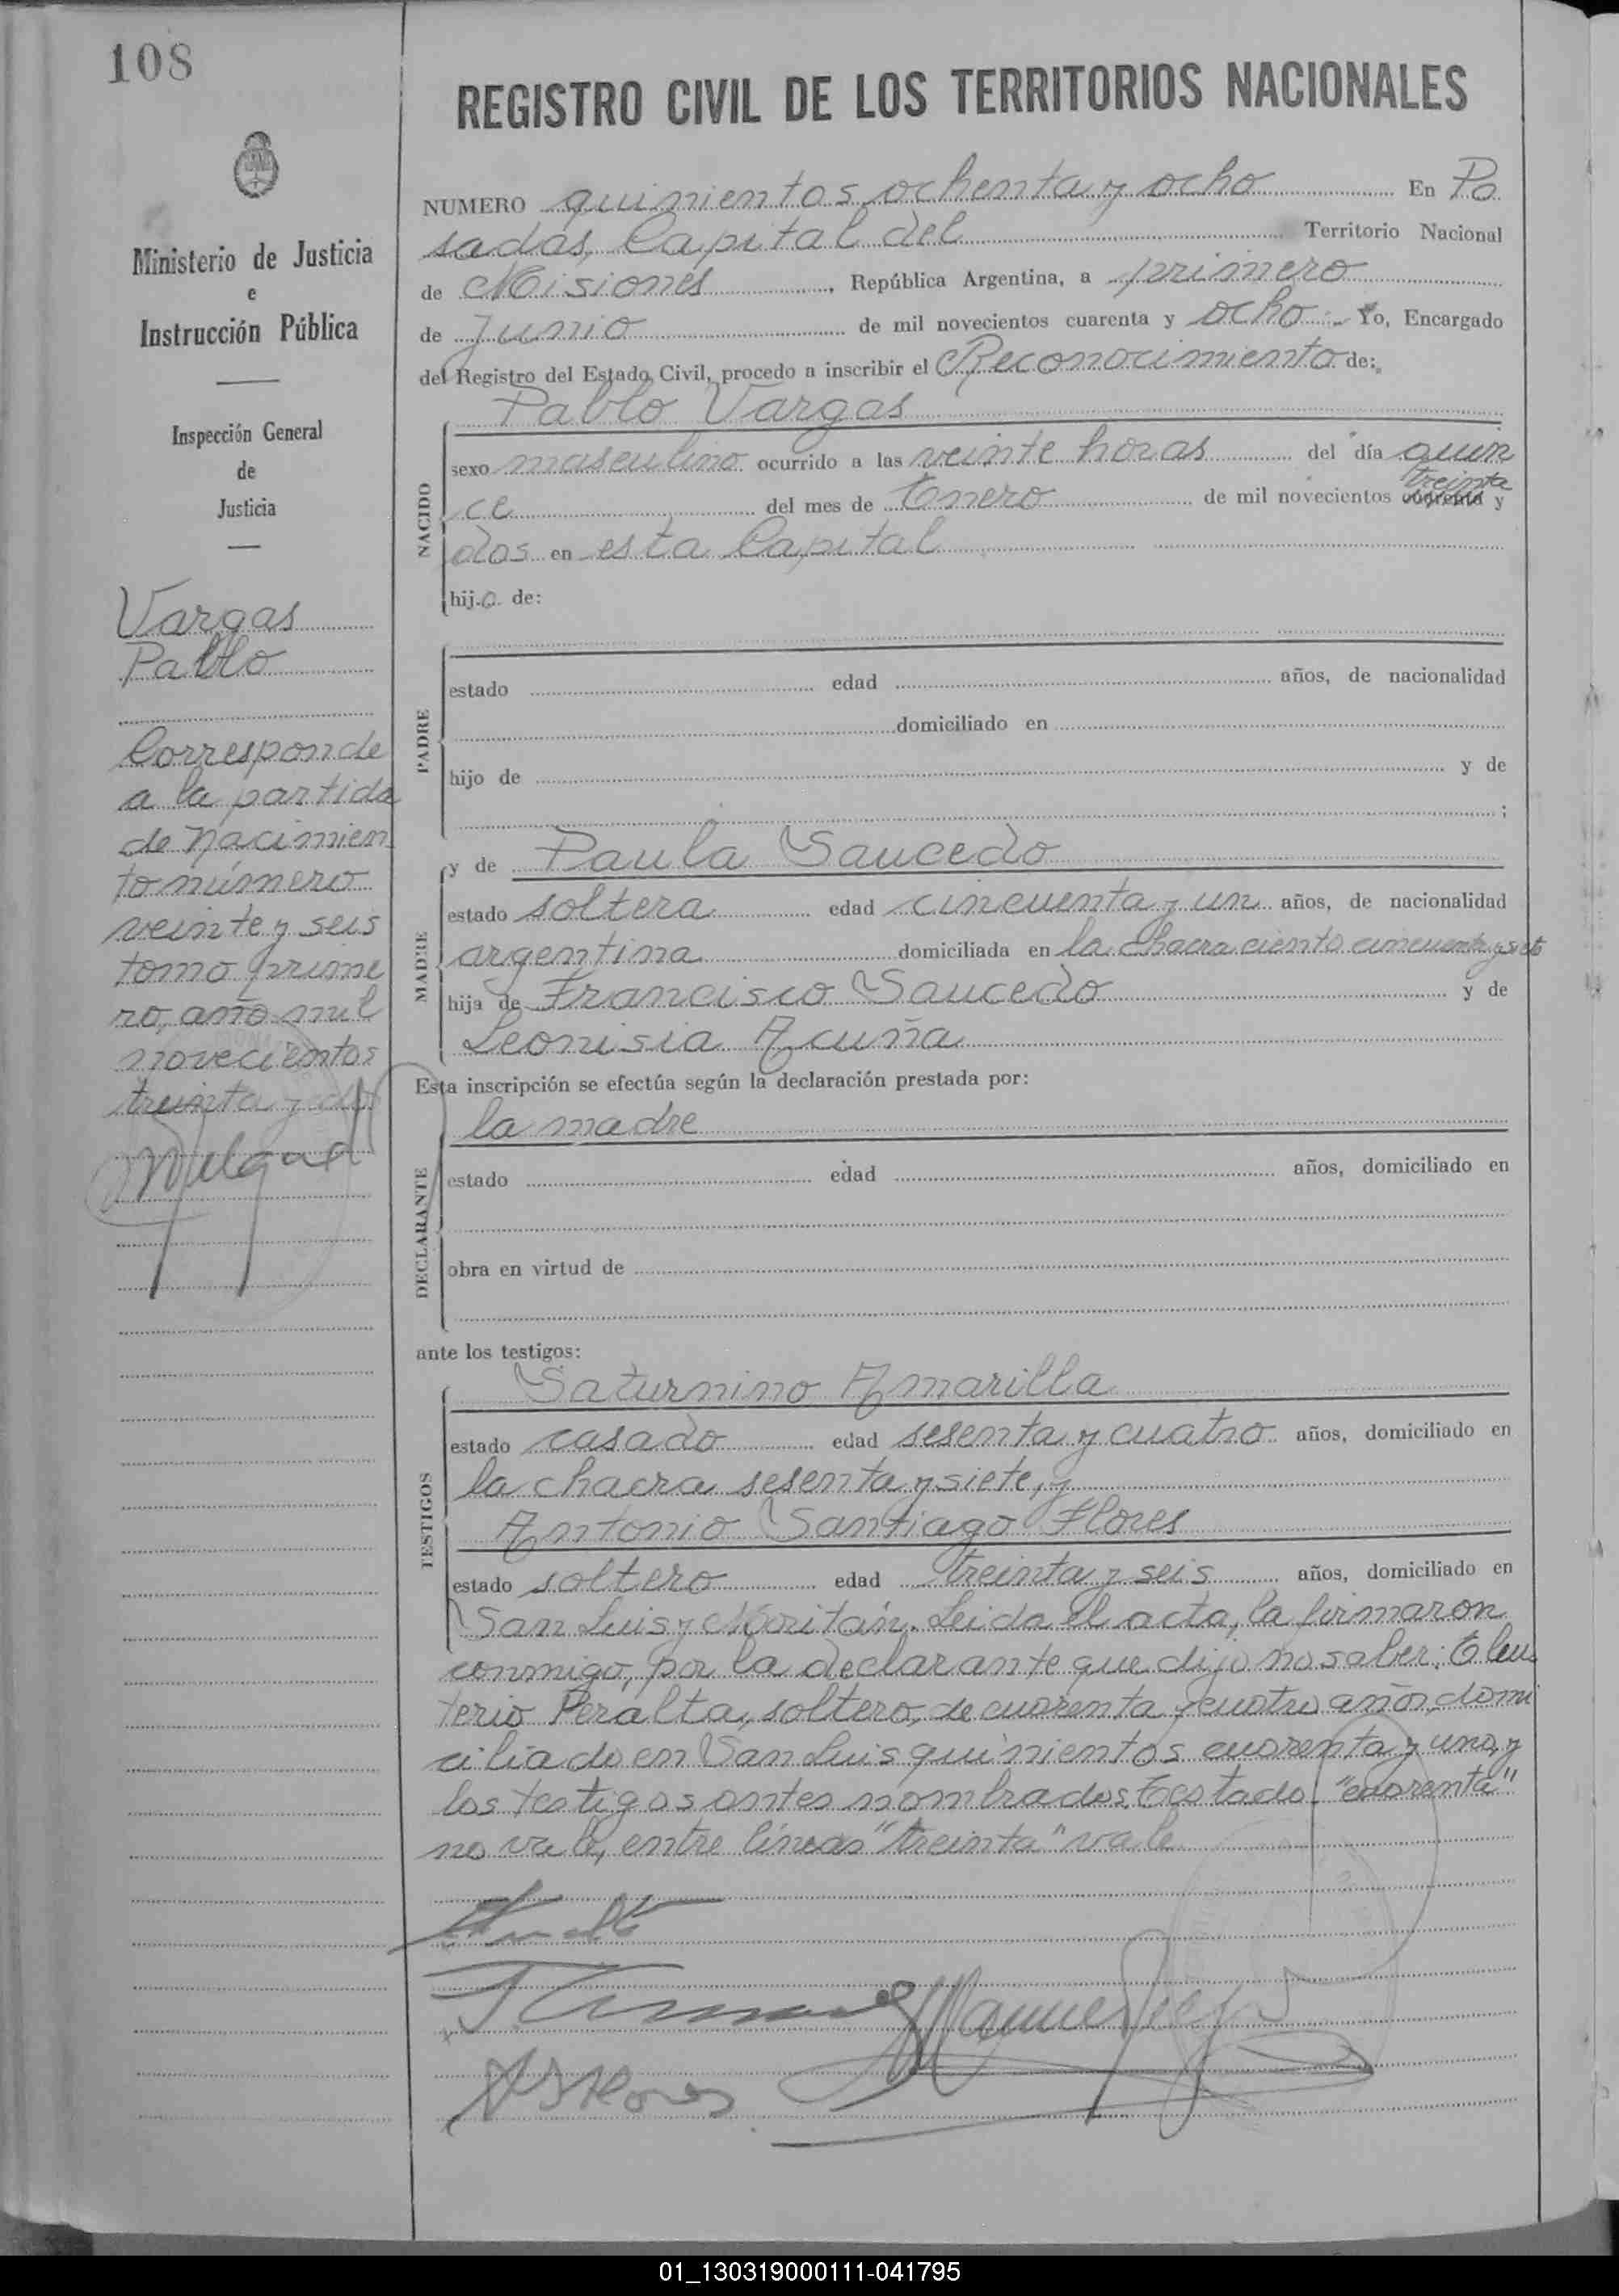 108
REGISTRO CIVIL DE LOS TERRITORIOS NACIONALES
Ministerio de Justicia
e
Instrucción Pública
Inspección General
de
Justicia
Vargas
Pablo
Corresponde
a la partida
de Nacimien
to número
veinte y seis
tomo prime
ro, año mil
novecientos
treinta y dos
NUMERO quinientos ochenta y ocho En Po
sadas, Capital del Territorio Nacional
de Misiones, República Argentina, a primero
de Junio de mil novecientos cuarenta y ocho.- Yo, Encargado
del Registro del Estado Civil, procedo a inscribir el Reconocimiento de:
Pablo Vargas
NACIDO
sexo masculino ocurrido a las veinte horas del día quin
treinta
ce del mes de Enero de mil novecientos cuarenta y
dos en esta Capital
hijo de:
PADRE
estado edad años, de nacionalidad
domiciliado en
hijo de y de
;
MADRE
y de Paula Saucedo
estado soltera edad cincuenta y un años, de nacionalidad
argentina domiciliada en la chacra ciento cincuenta y siete
hija de Francisco Saucedo y de
Leonisia Acuña
Esta inscripción se efectúa según la declaración prestada por:
la madre
DECLARANTE
estado edad años, domiciliado en
obra en virtud de
ante los testigos:
TESTIGOS
Saturnino Amarilla
estado casado edad sesenta y cuatro años, domiciliado en
la chacra sesenta y siete, y
Antonio Santiago Flores
estado soltero edad treinta y seis años, domiciliado en
San Luis y Moritán. Leida el acta, la firmaron
conmigo, por la declarante que dijo no saber, Eleu
terio Peralta, soltero, de cuarenta y cuatro años, domi
ciliado en San Luis quinientos cuarenta y uno, y
los testigos antes nombrados. Testado "cuarenta"
no vale, entre líneas "treinta" vale
A S Flores
01_130319000111-041795